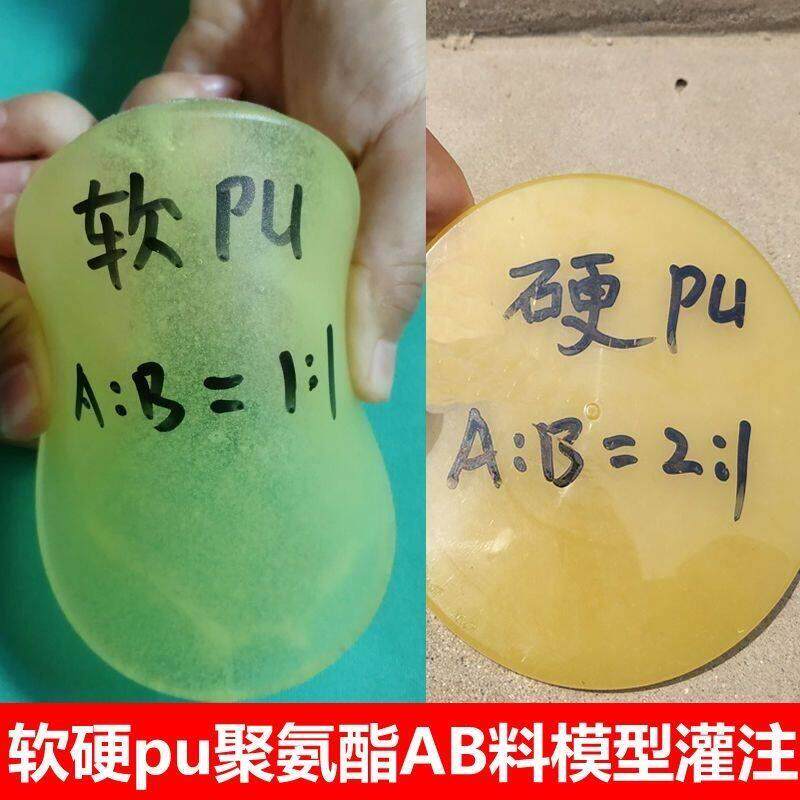 软 PU
A:B=1:1
硬 PU
A:B=2:1
软硬pu聚氨酯AB料模型灌注